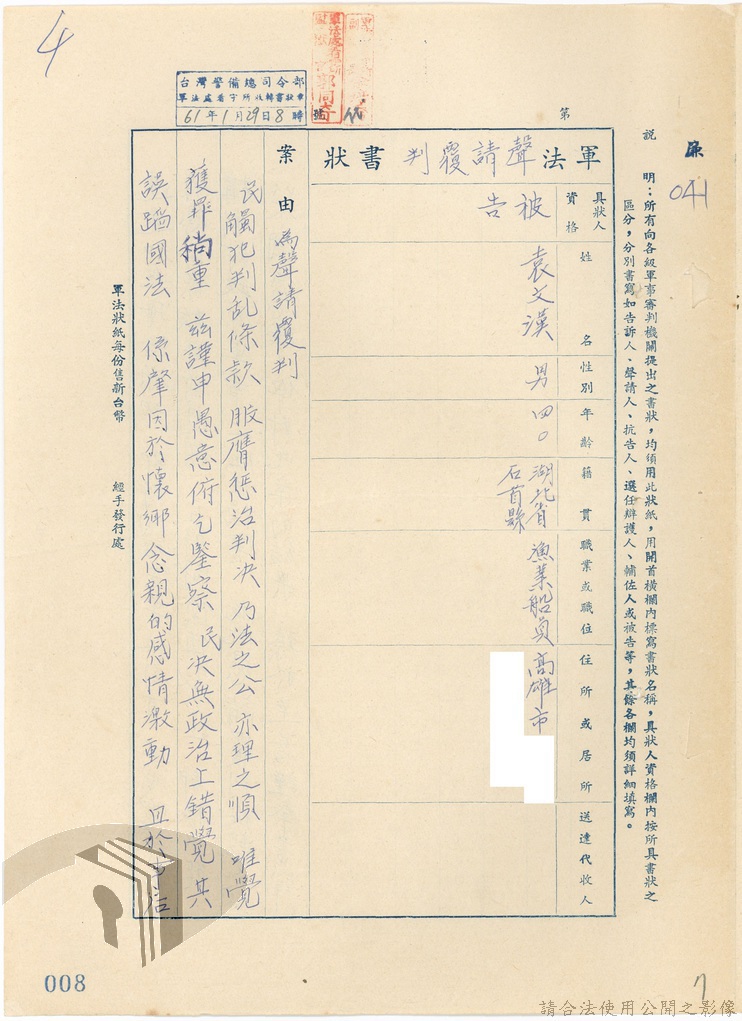 4
台灣警備總司令部
軍法處看守所收轉書狀章
61年1月29日8時
號
第
廉
041
說　明：所有向各級軍事審判機關提出之書狀，均須用此狀紙，用開首橫欄內標寫書狀名稱，具狀人資格欄內按所具書狀之
區分，分別書寫如告訴人、聲請人、抗告人、選任辯護人、輔佐人或被告等，其餘各欄均須詳細填寫。
軍法聲請覆判書狀
具狀人資格
被告
姓名
袁文漢
性別
男
年齡
四〇
籍貫
湖北省石首縣
職業或職位
漁業船員
住所或居所
高雄市
送達代收人
案由
為聲請覆判
民觸犯判乱條款 服膺懲治判决 乃法之公 亦理之順 唯覺
獲罪稍重 茲謹申愚意俯乞鑒察 民决無政治上錯覺 其
誤蹈國法 係肇因於懷鄉念親的感情激動 且於事后
軍法狀紙每份售新台幣　　經手發行處
008
7
請合法使用公開之影像